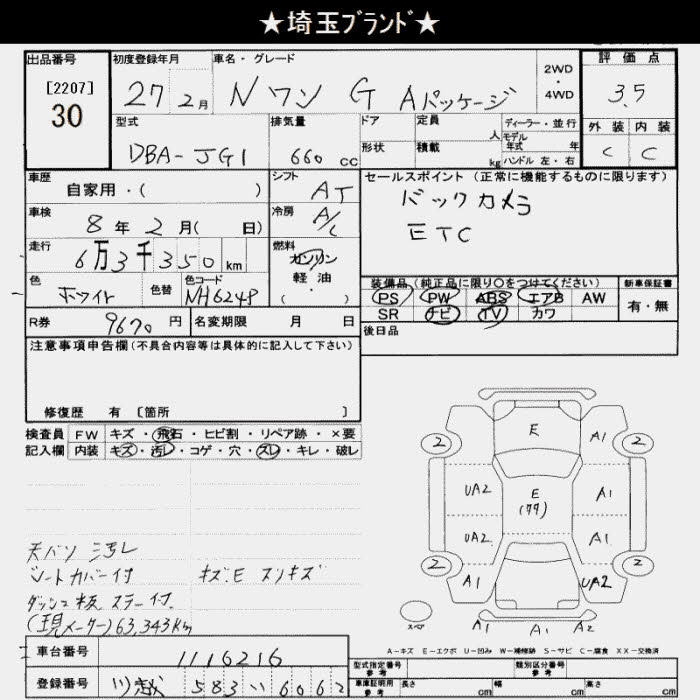 ★埼玉ﾌﾞﾗﾝﾄﾞ★
出品番号 初度登録年月 車名・グレード 2WD・4WD 評価点
[2207] 30 27 2月 Nワン G Aパッケージ 3.5
型式 排気量 ドア 定員 人 ディーラー・並行 外装 内装
DBA-JG1 660 cc 形状 積載 kg モデル年式 年 ハンドル 左・右 C C
車歴 自家用・( ) シフト AT セールスポイント (正常に機能するものに限ります)
車検 8年2月( 日) 冷房 A/C バックカメラ
走行 6万3千350km 燃料 ガソリン 軽油 ・( ) ETC
色 ホワイト 色替 色コード NH624P 装備品 (純正品に限り○をつけてください) 新車保証書
PS PW ABS エアB AW 有・無
R券 9670円 名変期限 月 日 SR ナビ TV カワ
注意事項申告欄(不具合内容等は具体的に記入して下さい) 後日品
修復歴 有 [箇所 ]
検査員 FW キズ・飛石・ヒビ割・リペア跡・×要
記入欄 内装 キズ・汚レ・コゲ・穴・スレ・キレ・破レ
2 E A1 2
UA2 E A1
(99)
UA2 A1
2 A1 UA2 2
スペア A1 A1 A2
シートカバー付 キズ.E スリキズ
ダッシュ板 ステー付.
(現メーター)63,343Km
A-キズ E-エクボ U-凹み W-補修跡 S-サビ C-腐食 XX-交換済
車台番号 1116216 型式指定番号 参考 類別区分番号 参考
登録番号 川越 583 い 6062 車庫証明用 参考 長さ cm 幅 cm 高さ cm